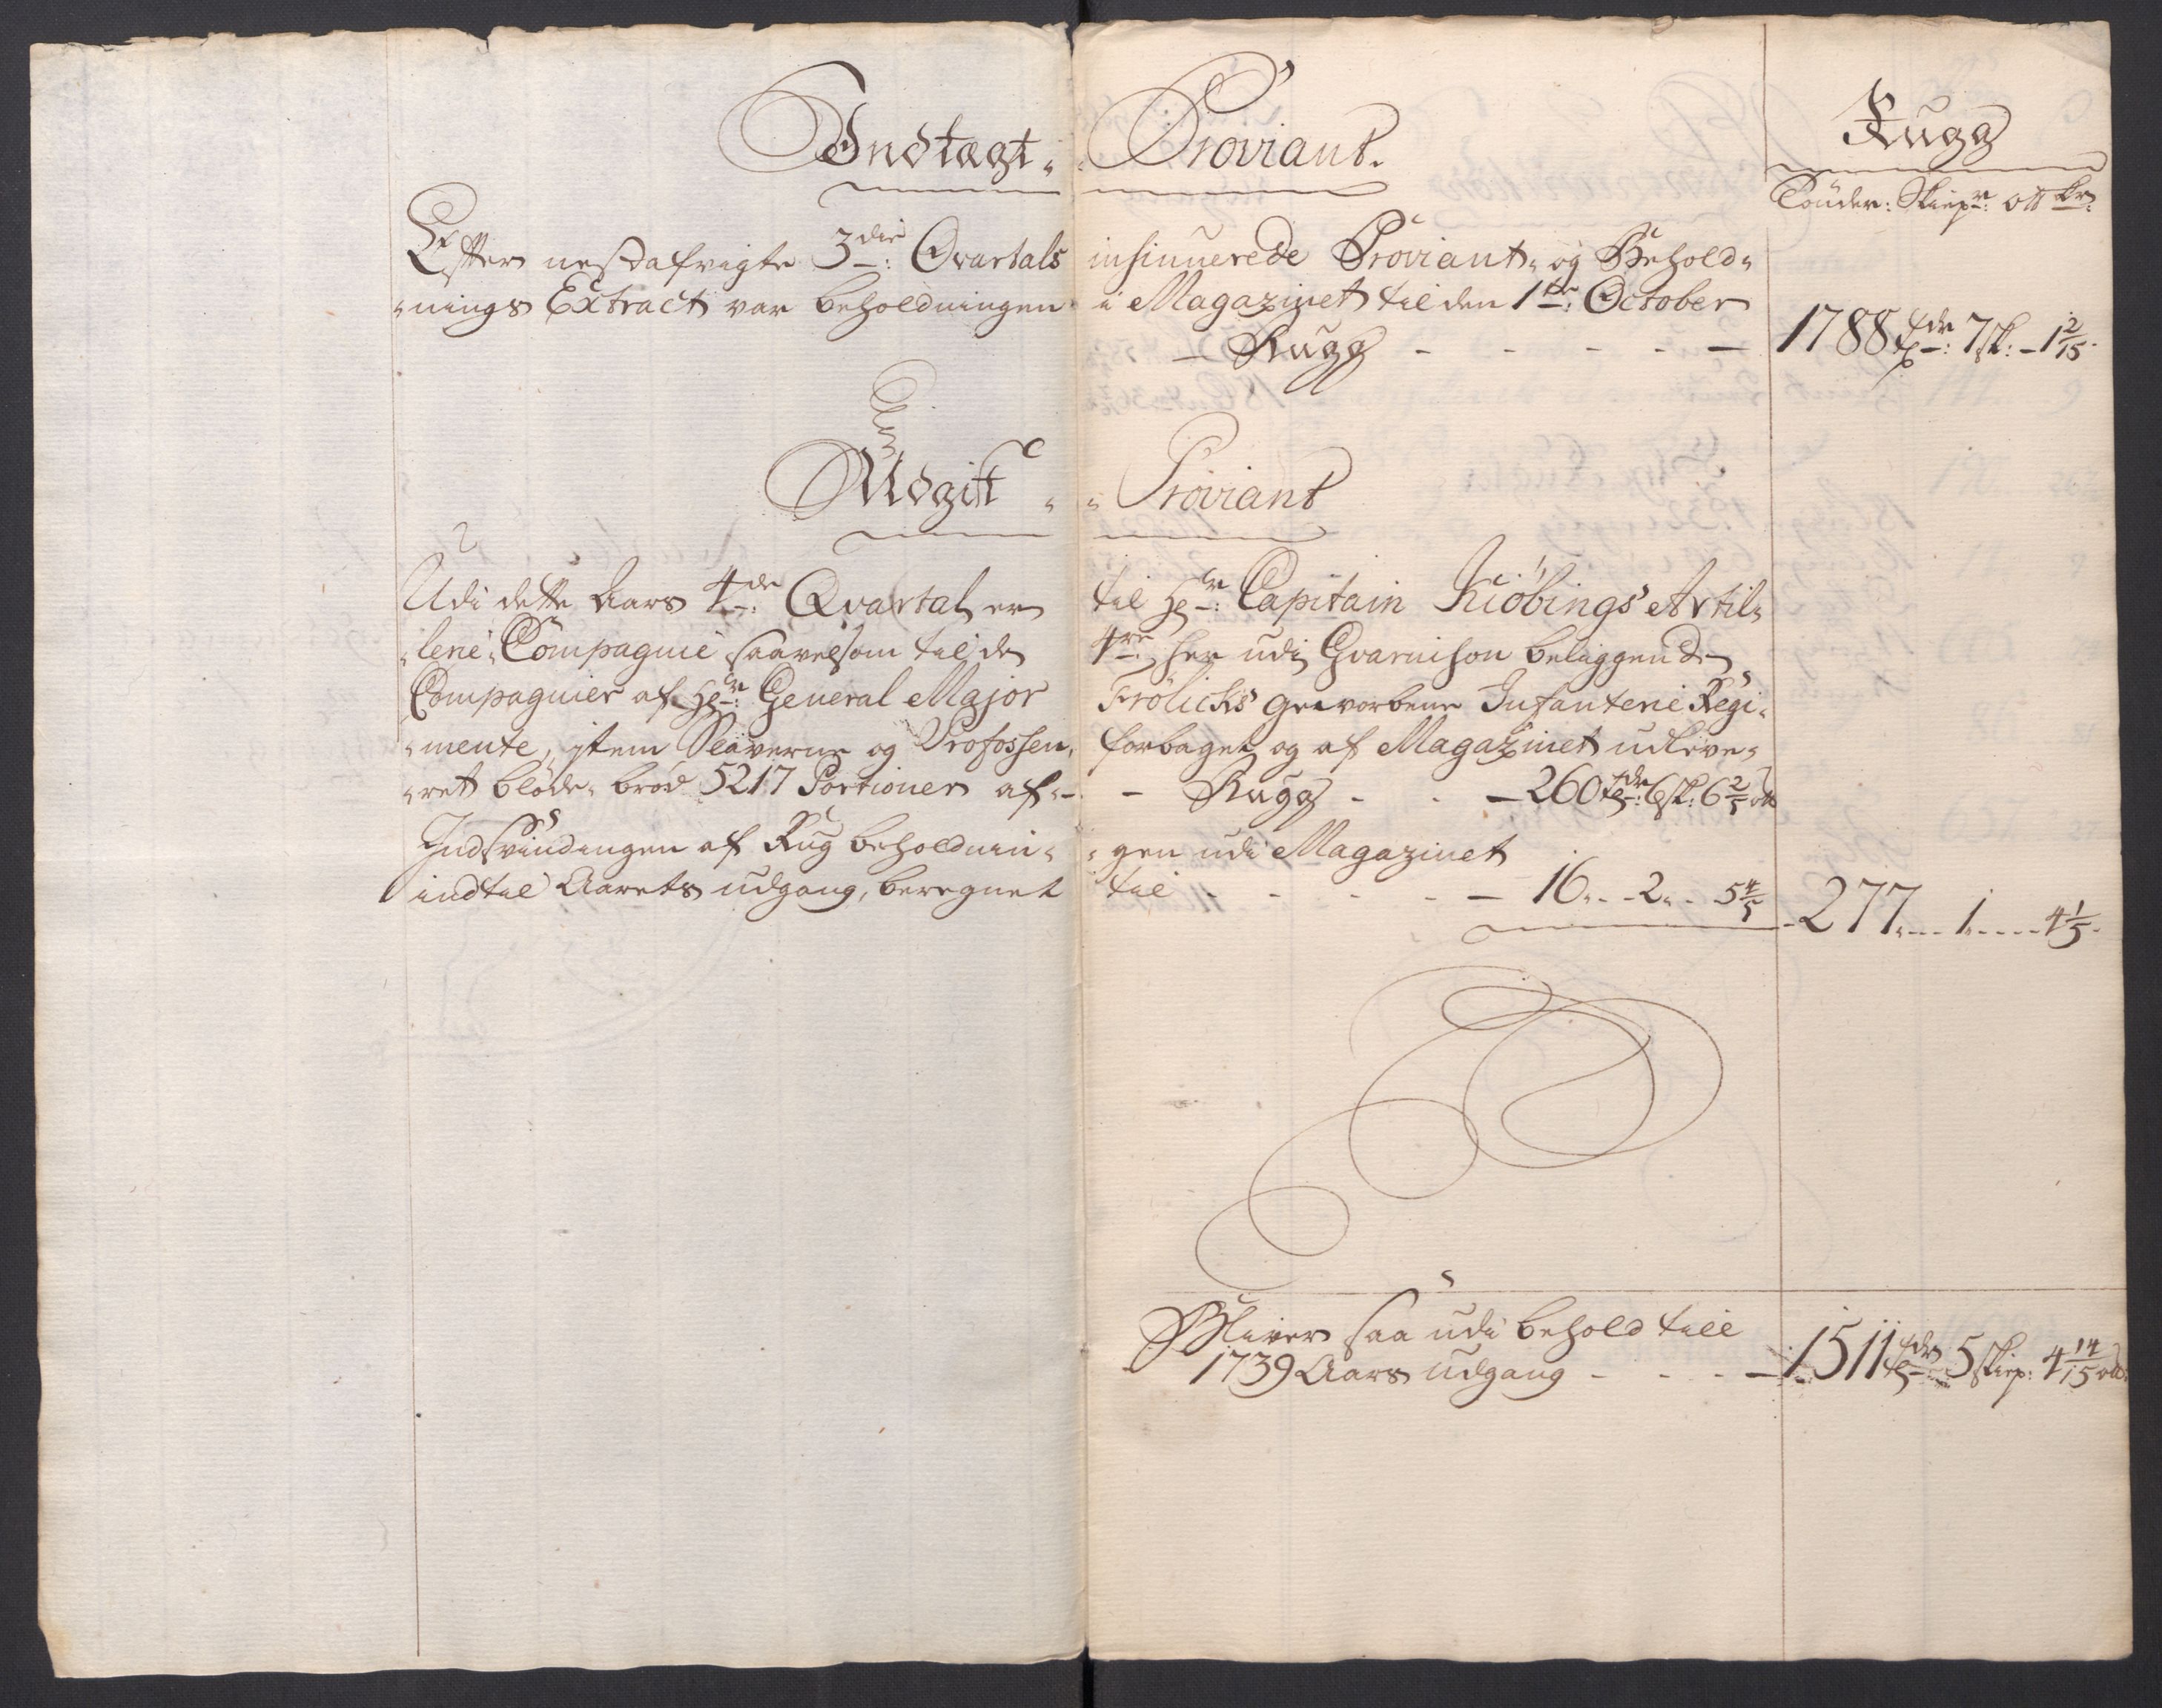 Indtægt Proviant.
Rugg
Tönder: Skiepr: ottkr:
Efter nestafvigte 3die: Qvartals insinuerede Proviant- og Behold-
-nings Extract var beholdningen i Magazinet til den 1te: October
- Rugg - - - - - 1788 tdr: 7 sk: - 1 2/15.
Udgift Proviant
Udi dette Aars 4de: Qvartal er til Hr: Capitain Kiöbings Artil-
-lerie Compagnie saavelsom til de 4re her udi Gvarnison beliggende
Compagnier af Hr: General Major Frölichs gevorbene Infanterie Regi-
-mente, item Slaverne og Profossen, forbaget og af Magazinet udleve-
-ret bløde-brød 5217 Portioner af - - Rugg - - - 260 tdr: 6 sk: 6 2/5 ott
Indsvindingen af Rug beholdnin- -gen udi Magazinet
indtil Aarets udgang, beregnet til - - - - - 16 - - 2 - - 5 4/5 - 277 - - - 1 - - - - 4 1/5.
Bliver saa udi behold till
1739 Aars udgang - - - - 1511 tdr: 5 skiep: 4 14/15 ott: